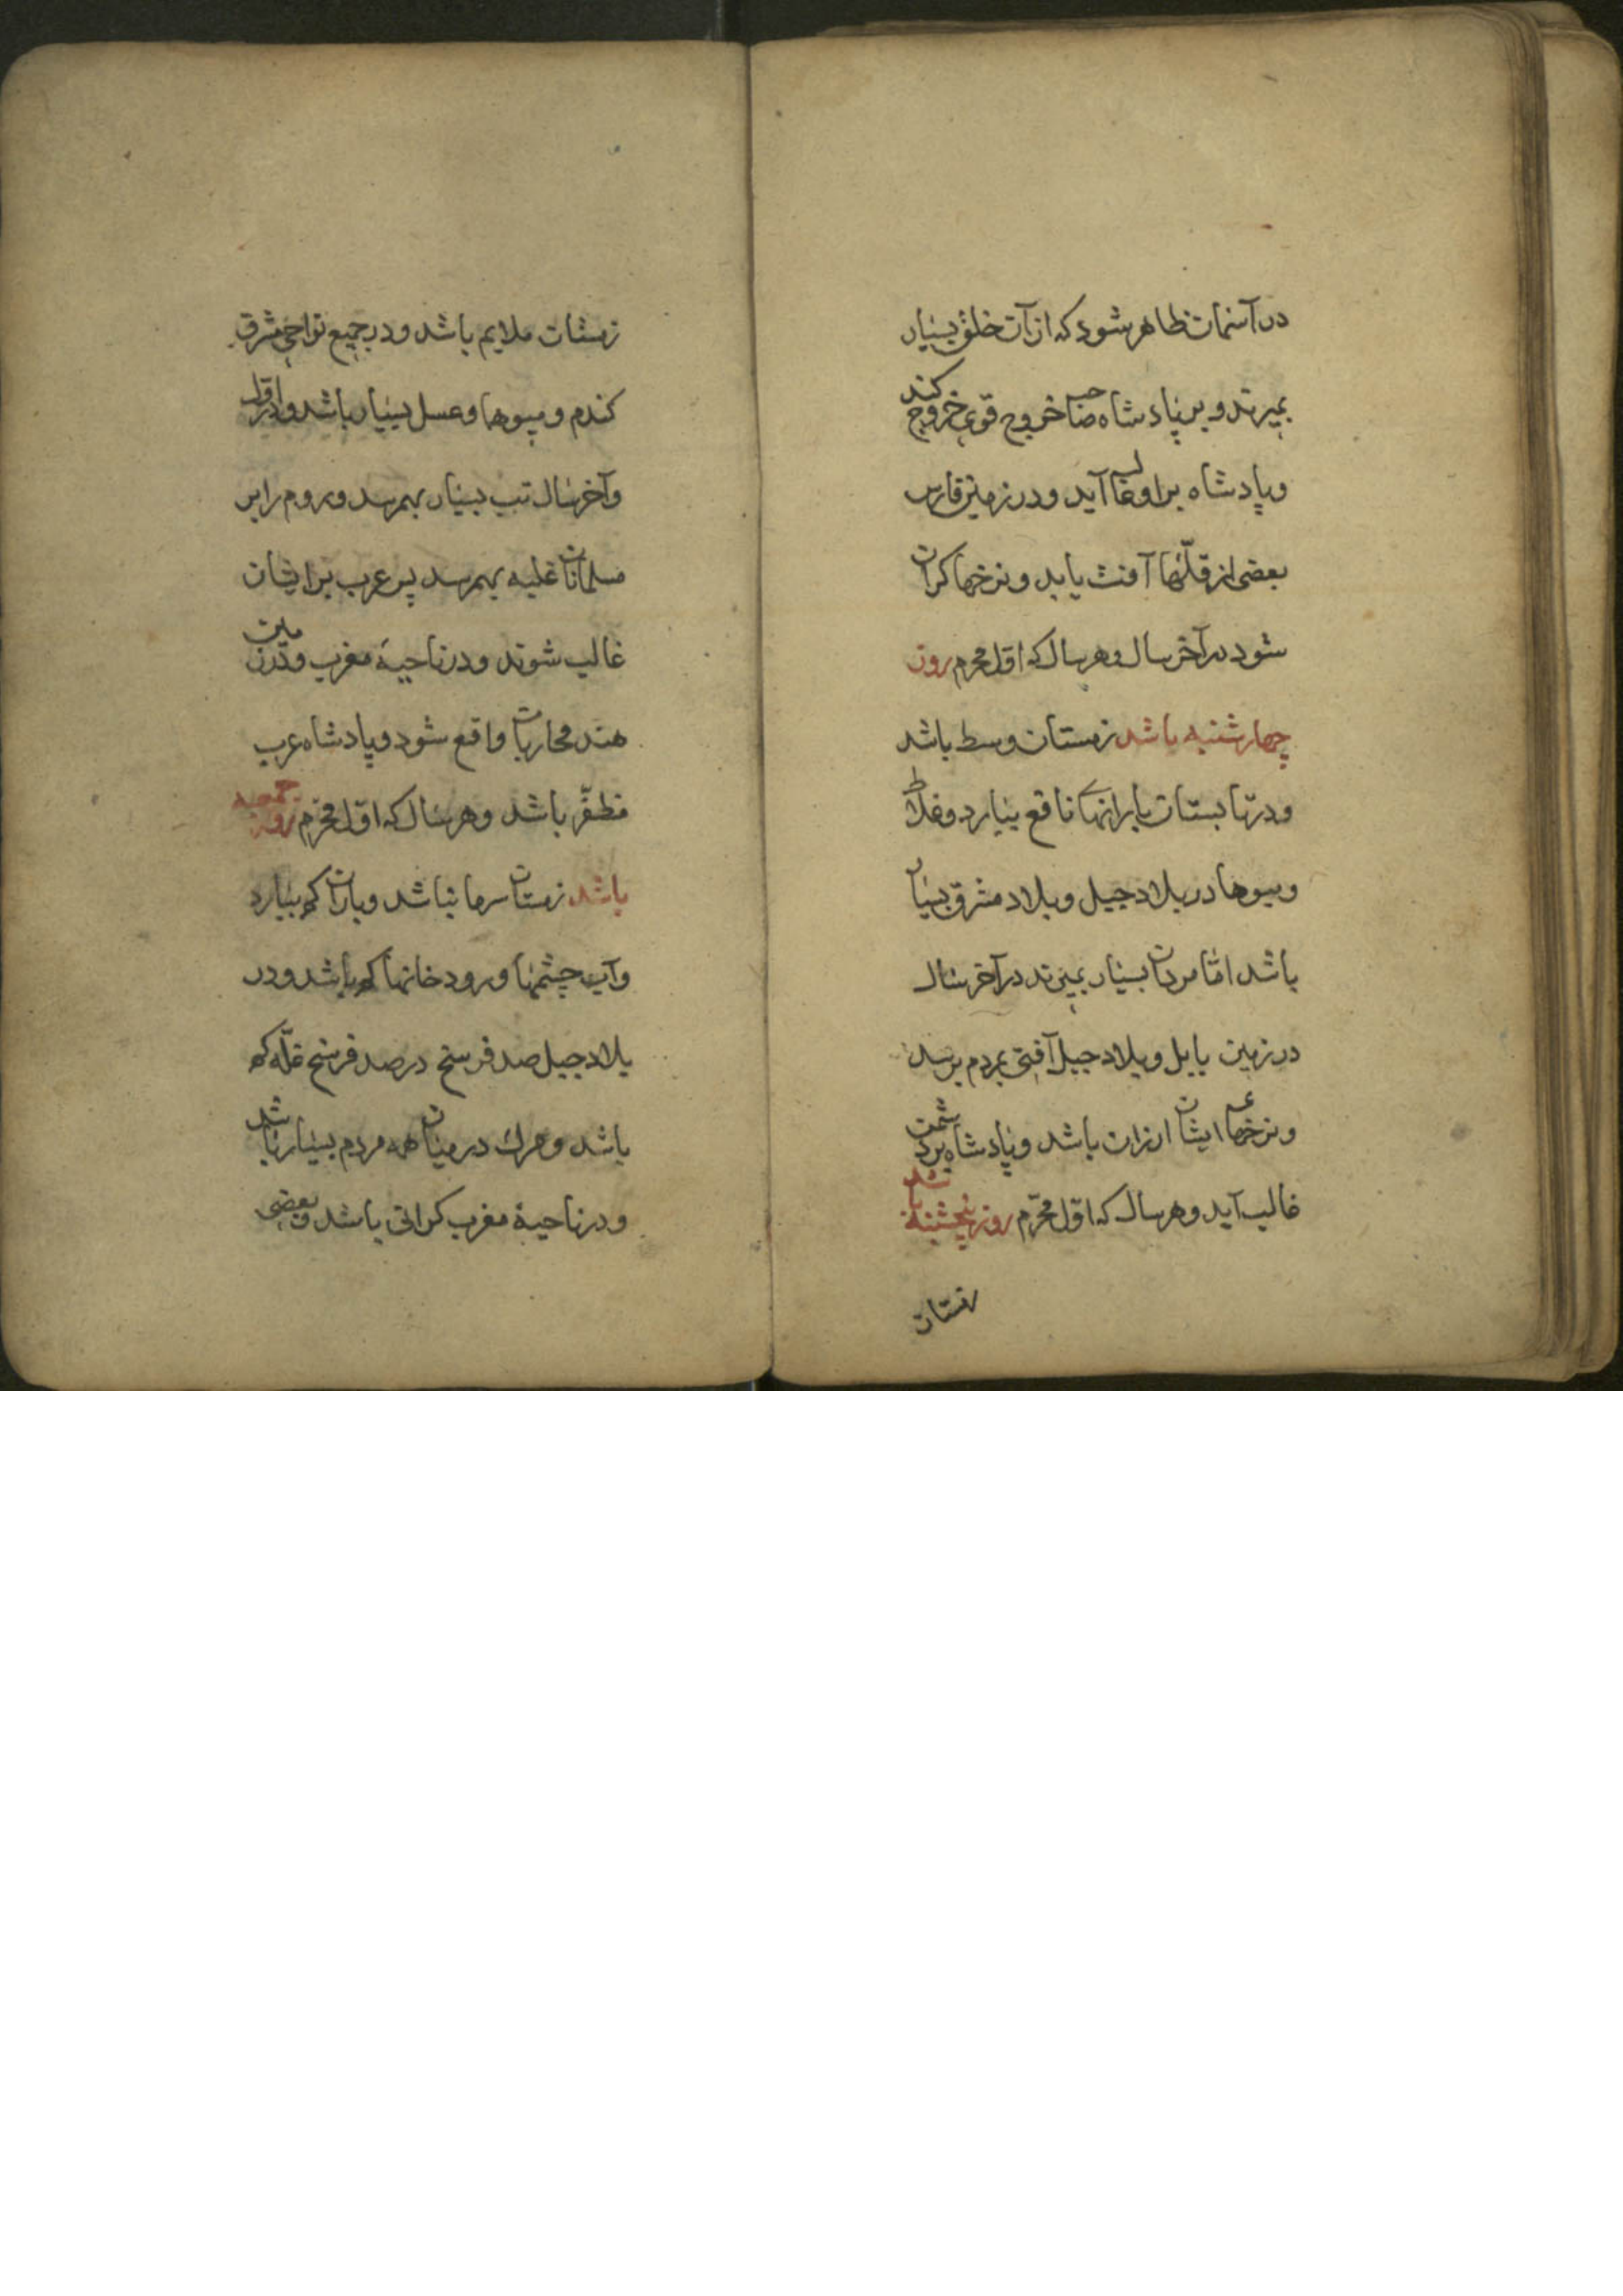 در آسمان ظاهر شود که از آن خلق بسیار
بمیرند و بر پادشاه صاحب خروج قوی خروج کند
و پادشاه بر او غالب آید و در زمین فارس
بعضی از قلّها آفت یابد و نرخها کران
شود در آخر سال و هر سال که اوّل محرم روز
چهارشنبه باشد زمستان وسط باشد
و در تابستان بارانهای نافع ببارد و غلات
و میوها در بلاد جبل و بلاد مشرق بسیار
باشد امّا مردان بسیار بمیرند در آخر سال
در زمین بابل و بلاد جبل آفتی بمردم برسد
و نرخهای ایشان ارزان باشد و پادشاه بر دشمن
غالب آید و هر سال که اوّل محرّم روز پنجشنبه باشد
زمستان
زمستان ملایم باشد و در جمیع نواحی مشرق
کندم و میوها و عسل بسیار باشد و در اوّل
و آخر سال تب بسیار بهم رسد و روم را بر
مسلمانان غلبه بهم رسد پس عرب بر ایشان
غالب شوند و در ناحیهٔ مغرب و در زمین
هند محاربات واقع شود و پادشاه عرب
مظفّر باشد و هر سال که اوّل محرّم روز جمعه
باشد زمستان سرما نباشد و باران کم ببارد
و آب چشمها و رودخانها کم باشد و در
بلاد جبل صد فرسخ در صد فرسخ غلّه کم
باشد و مرک در میان همه مردم بسیار باشد
و در ناحیهٔ مغرب کرانی باشد و بعضی